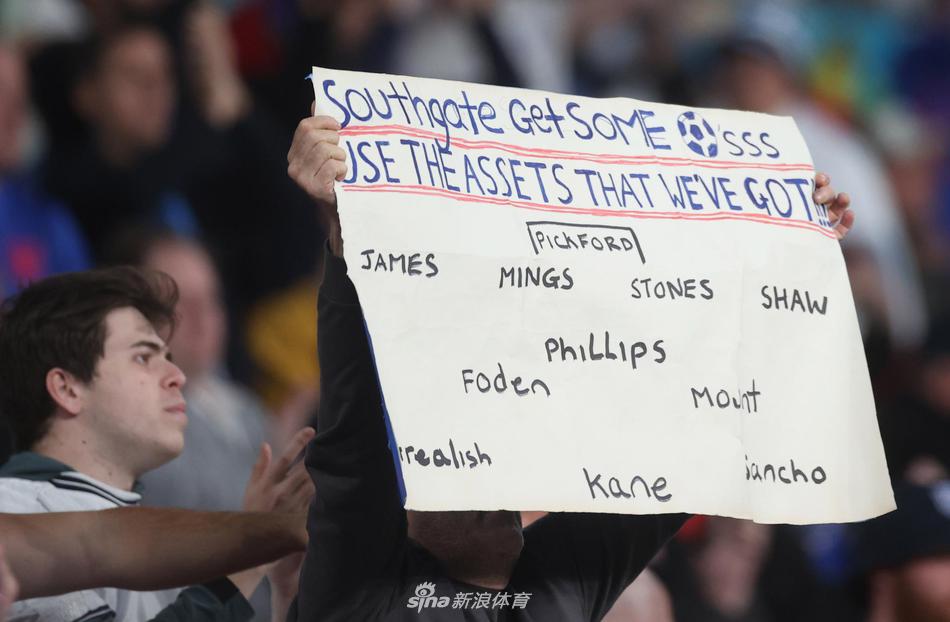 Southgate Get SOME 'SSS
USE THE ASSETS THAT WE'VE GOT!!!
PICKFORD
JAMES MINGS STONES SHAW
PhiLLIPS
Foden Mount
realish Kane Sancho
sina 新浪体育